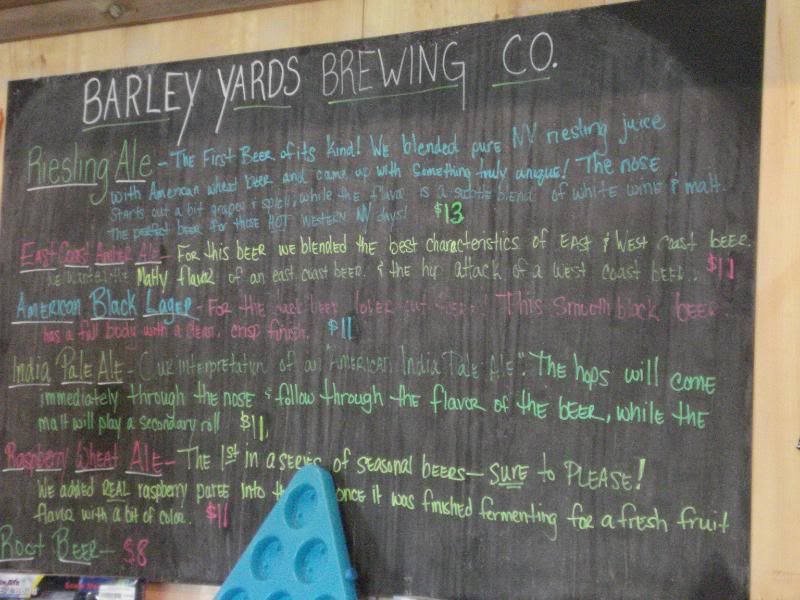 BARLEY YARDS BREWING CO.
Riesling Ale - The First Beer of its kind! We blended pure NY riesling juice
with American wheat beer and came up with something truly unique! The nose
starts out a bit grapey & spicy, while the flavor is a subtle blend of white wine & malt.
The perfect beer for those HOT WESTERN NY days! $13
East Coast Amber Ale - For this beer we blended the best characteristics of East & West coast beer.
We wanted the Malty flavor of an east coast beer & the hip attack of a west coast beer. $11
American Black Lager - For the dark beer lover out there! This smooth black beer
has a full body with a clean, crisp finish. $11
India Pale Ale - Our interpretation of an "American India Pale Ale". The hops will come
immediately through the nose & follow through the flavor of the beer, while the
malt will play a secondary roll $11
Raspberry Wheat Ale - The 1st in a series of seasonal beers - SURE to PLEASE!
We added REAL raspberry puree into once it was finished fermenting for a fresh fruit
flavor with a bit of color. $11
Root Beer - $8